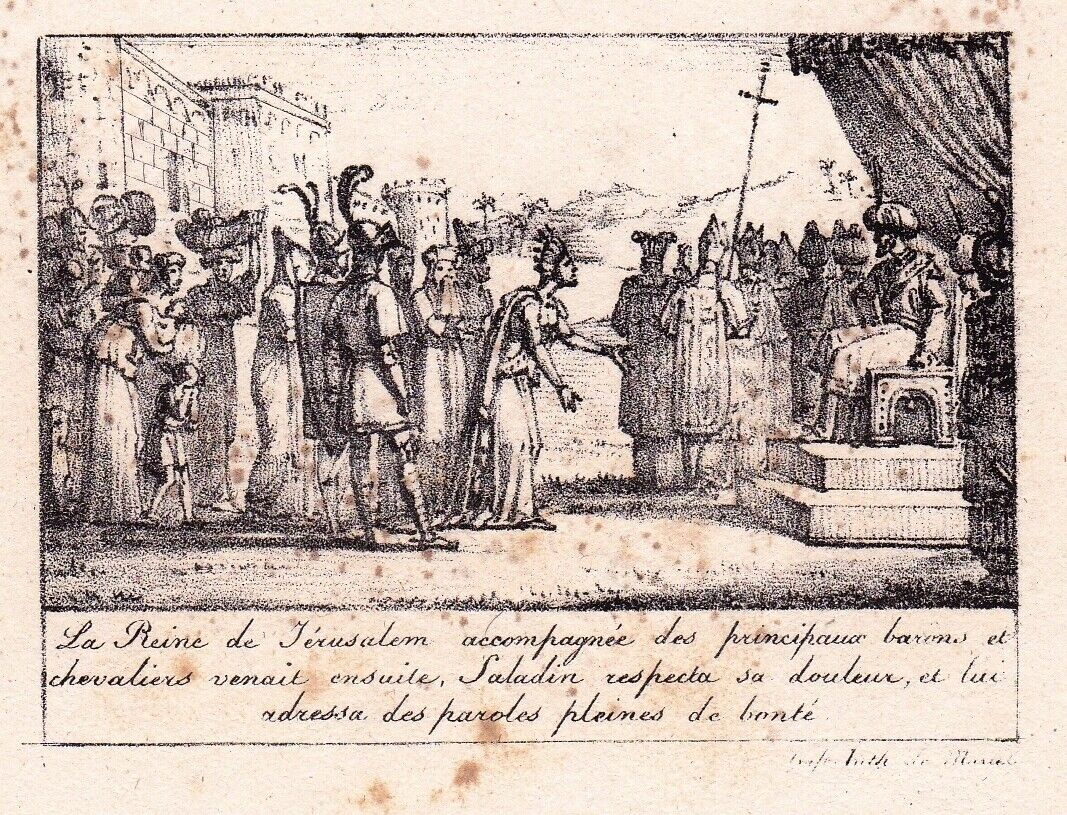 La Reine de Jérusalem accompagnée des principaux barons et
chevaliers venait ensuite, Saladin respecta sa douleur, et lui
adressa des paroles pleines de bonté
Lith de